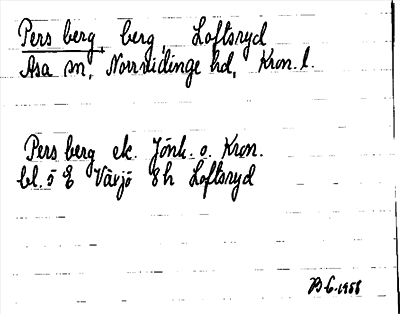 Pers berg, berg, Loftsryd
Asa sn, Norrvidinge hd, Kron. l.
Pers berg ek. Jönk. o. Kron.
bl. 5 E Växjö 8h Loftsryd
1958